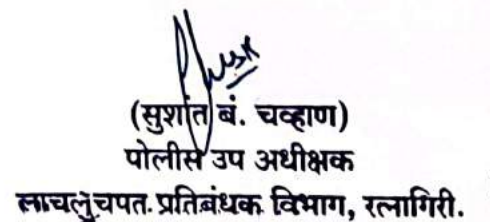 (सुशांत बं. चव्हाण)
पोलीस उप अधीक्षक
लाचलुचपत प्रतिबंधक विभाग, रत्नागिरी.